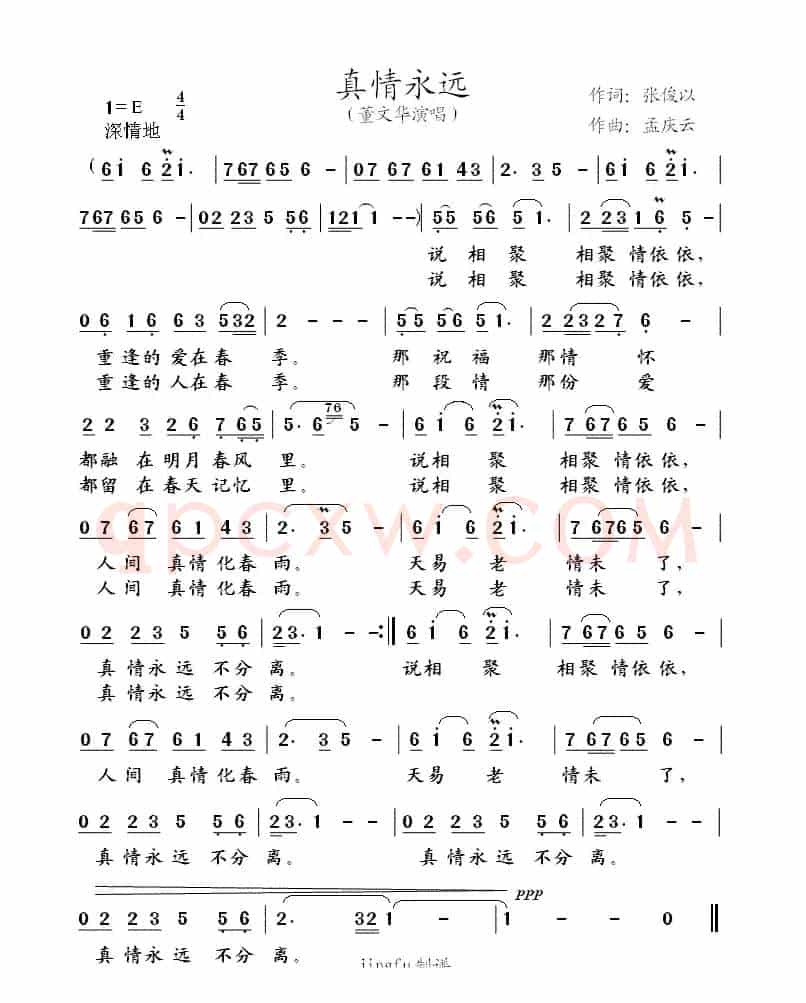 真情永远
1=E 4/4
(董文华演唱)
作词：张俊以
深情地
作曲：孟庆云
(6i 6 2i. | 767656 - | 07 6761 43 | 2. 35 - | 6i 6 2i. |
767656 - | 02 235 56 | 1211 --) | 55 56 51. | 2 2316 5 - |
说相聚 相聚情依依，
说相聚 相聚情依依，
06 16 63 532 | 2 - - - | 55 56 51. | 2 2327 6 - |
重逢的爱在春 季。 那祝福 那情 怀
重逢的人在春 季。 那段情 那份 爱
22 3 26 765 | 5. 6 76 5 - | 6i 6 2i. | 7 67656 - |
都融在明月春风 里。 说相聚 相聚情依依，
都留在春天记忆 里。 说相聚 相聚情依依，
qpcxw.com
07 67 61 43 | 2. 35 - | 6i 6 2i. | 7 67656 - |
人间 真情化春雨。 天易老 情未了，
人间 真情化春雨。 天易老 情未了，
02 23 5 56 | 23. 1 - - :‖ 6i 6 2i. | 7 67656 - |
真情永远不分离。 说相聚 相聚情依依，
真情永远不分离。
07 67 61 43 | 2. 35 - | 6i 6 2i. | 7 67656 - |
人间 真情化春雨。 天易老 情未了，
02 23 5 56 | 23. 1 - - | 02 23 5 56 | 23. 1 - - |
真情永远不分离。 真情永远不分离。
ppp
02 23 5 56 | 2. 321 - | 1 - - 0 ‖
真情永远不分离。
jingfu 制谱